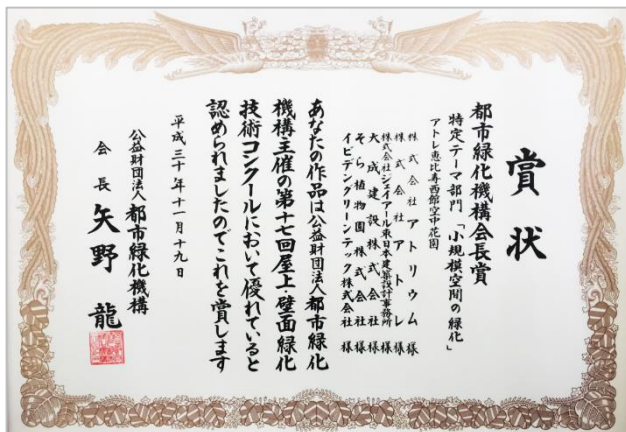 賞状
都市緑化機構会長賞
特定テーマ部門 「小規模空間の緑化」
アトレ恵比寿西館空中花園
株式会社アトリウム様
株式会社アトレ様
株式会社ジェイアール東日本建築設計事務所様
大成建設株式会社様
そら植物園株式会社様
イビデングリーンテック株式会社様
あなたの作品は公益財団法人都市緑化
機構主催の第十七回屋上・壁面緑化
技術コンクールにおいて優れていると
認められましたのでこれを賞します
平成三十年十一月十九日
公益財団法人 都市緑化機構
会長 矢野 龍